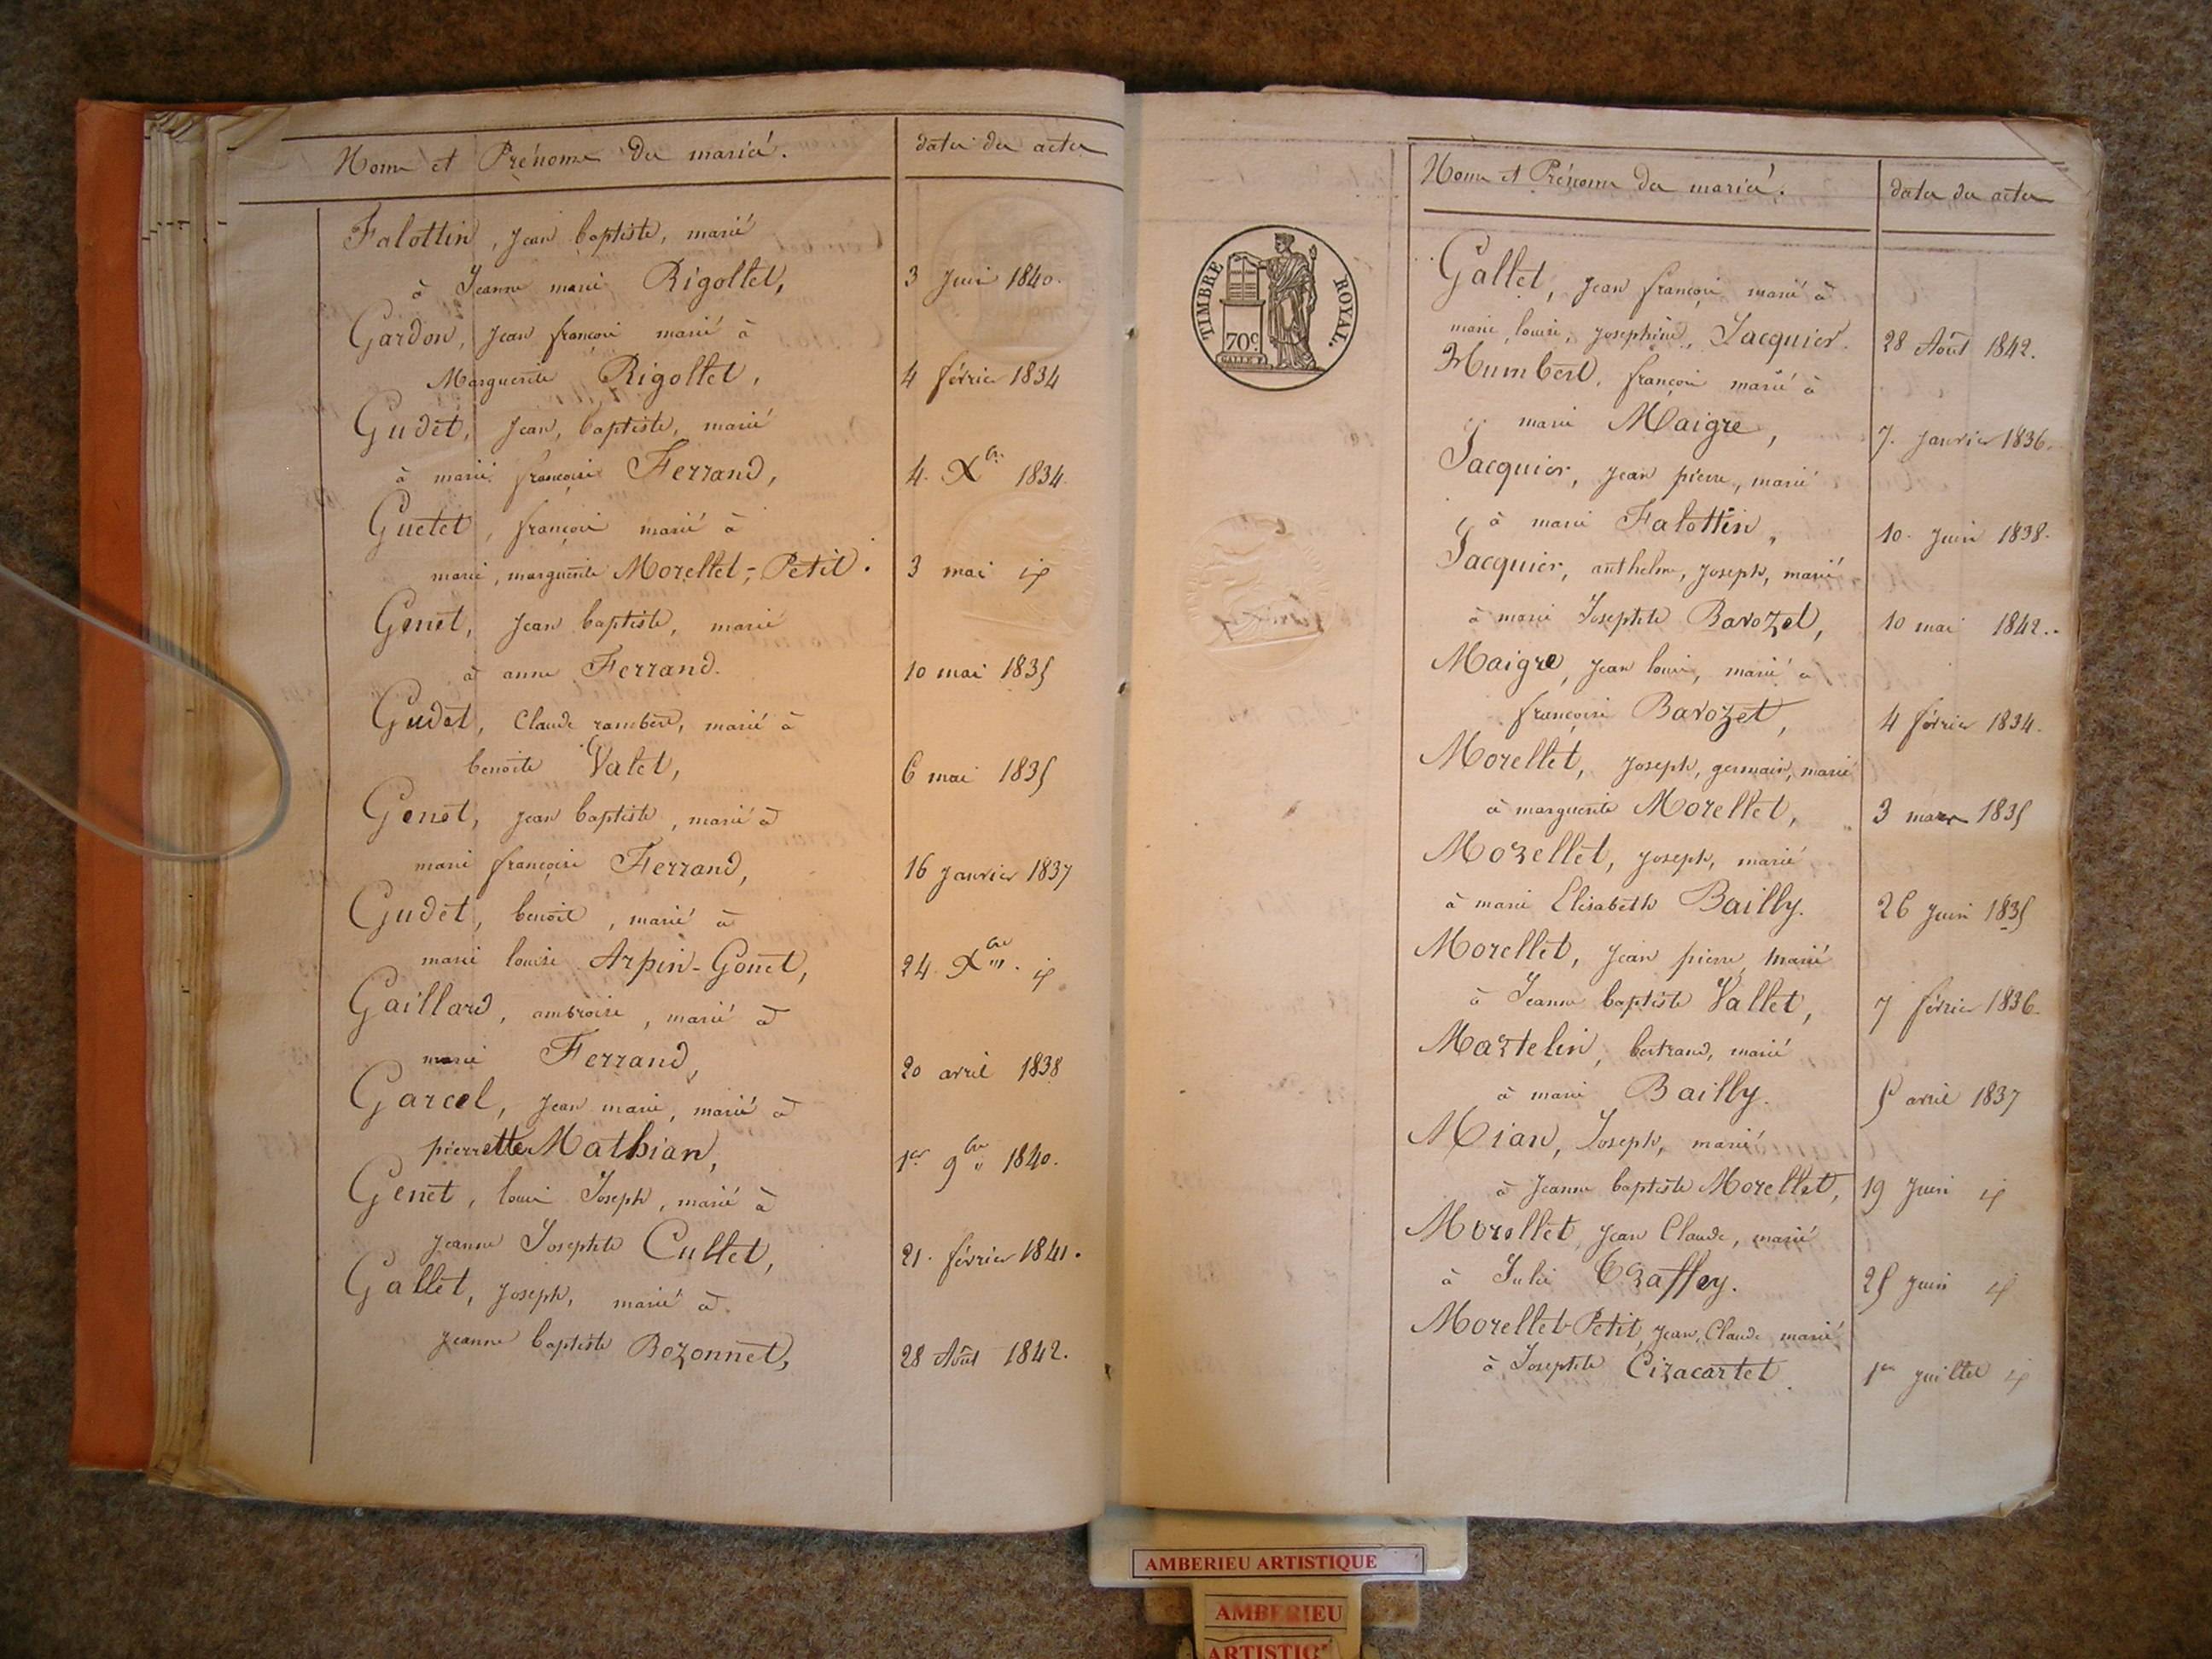 Noms et Prénoms des mariés.
dates des actes
Falottin, Jean baptiste, marié
à Jeanne marie Rigollet,
3 Juin 1840.
Gardon, Jean françois marié à
Marguerite Rigollet,
4 février 1834
Gudet, Jean, baptiste, marié
à marie françoise Ferrand,
4. Xbre 1834.
Guetet, françois marié à
marie, marguerite Morellet-Petit.
3 mai id
Genet, Jean baptiste, marié
à anne Ferrand.
10 mai 1835
Gudet, Claude rambert, marié à
benoite Valet,
6 mai 1835
Genet, Jean baptiste, marié à
marie françoise Ferrand,
16 Janvier 1837
Gudet, benoit, marié à
marie louise Arpin-Gonet,
24. Xbre. id
Gaillard, ambroise, marié à
marie Ferrand,
20 avril 1838
Garcel, Jean marie, marié à
pierrette Mathian,
1er 9bre 1840.
Genet, louis Joseph, marié à
Jeanne Josephte Cullet,
21. février 1841.
Gallet, Joseph, marié à
Jeanne baptiste Bozonnet,
28 Août 1842.
TIMBRE ROYAL.
70c.
Noms et Prénoms des mariés.
dates des actes
Gallet, Jean françois marié à
marie, louise, Josephine, Jacquier.
28 Août 1842.
Humbert, françois marié à
marie Maigre,
7. Janvier 1836.
Jacquier, Jean pierre, marié
à marie Falottin,
10. Juin 1838.
Jacquier, anthelme, Joseph, marié
à marie Josephte Barozet,
10 mai 1842.
Maigre, Jean louis, marié à
françoise Barozet,
4 février 1834.
Morellet, Joseph, germain, marié
à marguerite Morellet,
3 mars 1835
Morellet, Joseph, marié
à marie Elisabeth Bailly.
26 Juin 1835
Morellet, Jean pierre, marié
à Jeanne baptiste Vallet,
7 février 1836.
Martelin, bertrand, marié
à marie Bailly.
5 avril 1837
Mian, Joseph, marié
à Jeanne baptiste Morellet,
19 Juin id
Morellet, Jean Claude, marié
à Julie Traffey.
25 Juin id
Morellet-Petit, Jean, Claude, marié
à Josephte Cizacartet.
1er Juillet id
AMBERIEU ARTISTIQUE
AMBERIEU